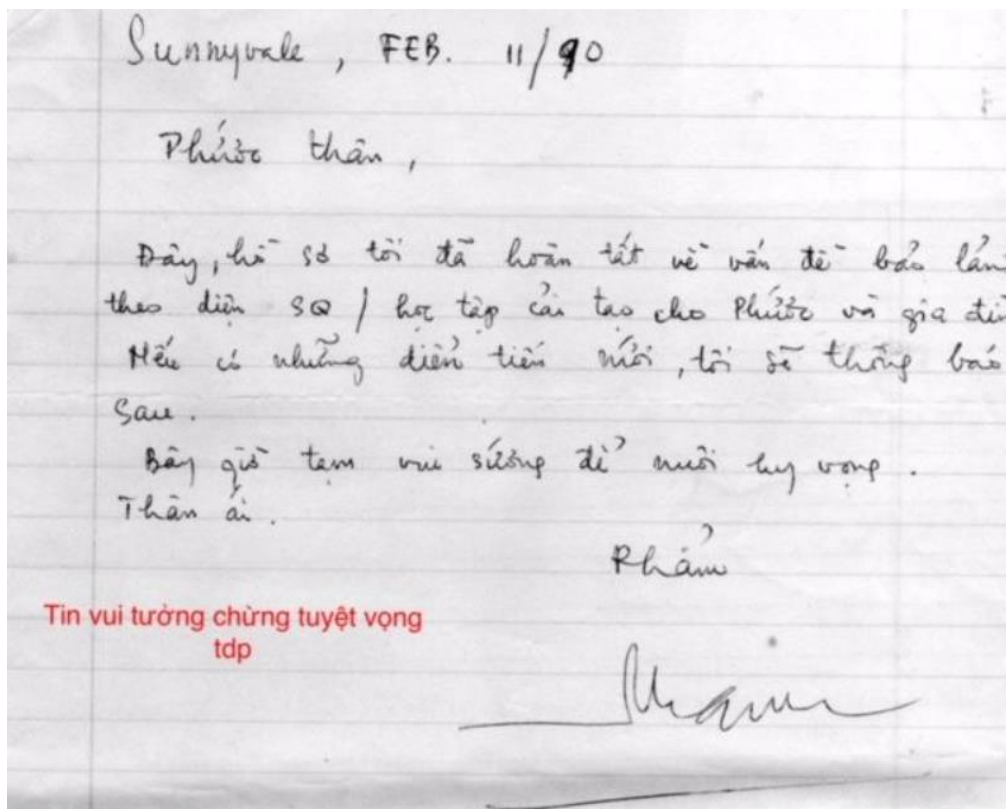 Sunnyvale, FEB. 11/90
Phước thân,
Đây, hồ sơ tôi đã hoàn tất về vấn đề bảo lãnh
theo diện SQ / học tập cải tạo cho Phước và gia đìn
Nếu có những diễn tiến mới, tôi sẽ thông báo
sau.
Bây giờ tạm vui sướng để nuôi hy vọng.
Thân ái.
Tin vui tưởng chừng tuyệt vọng
tdp